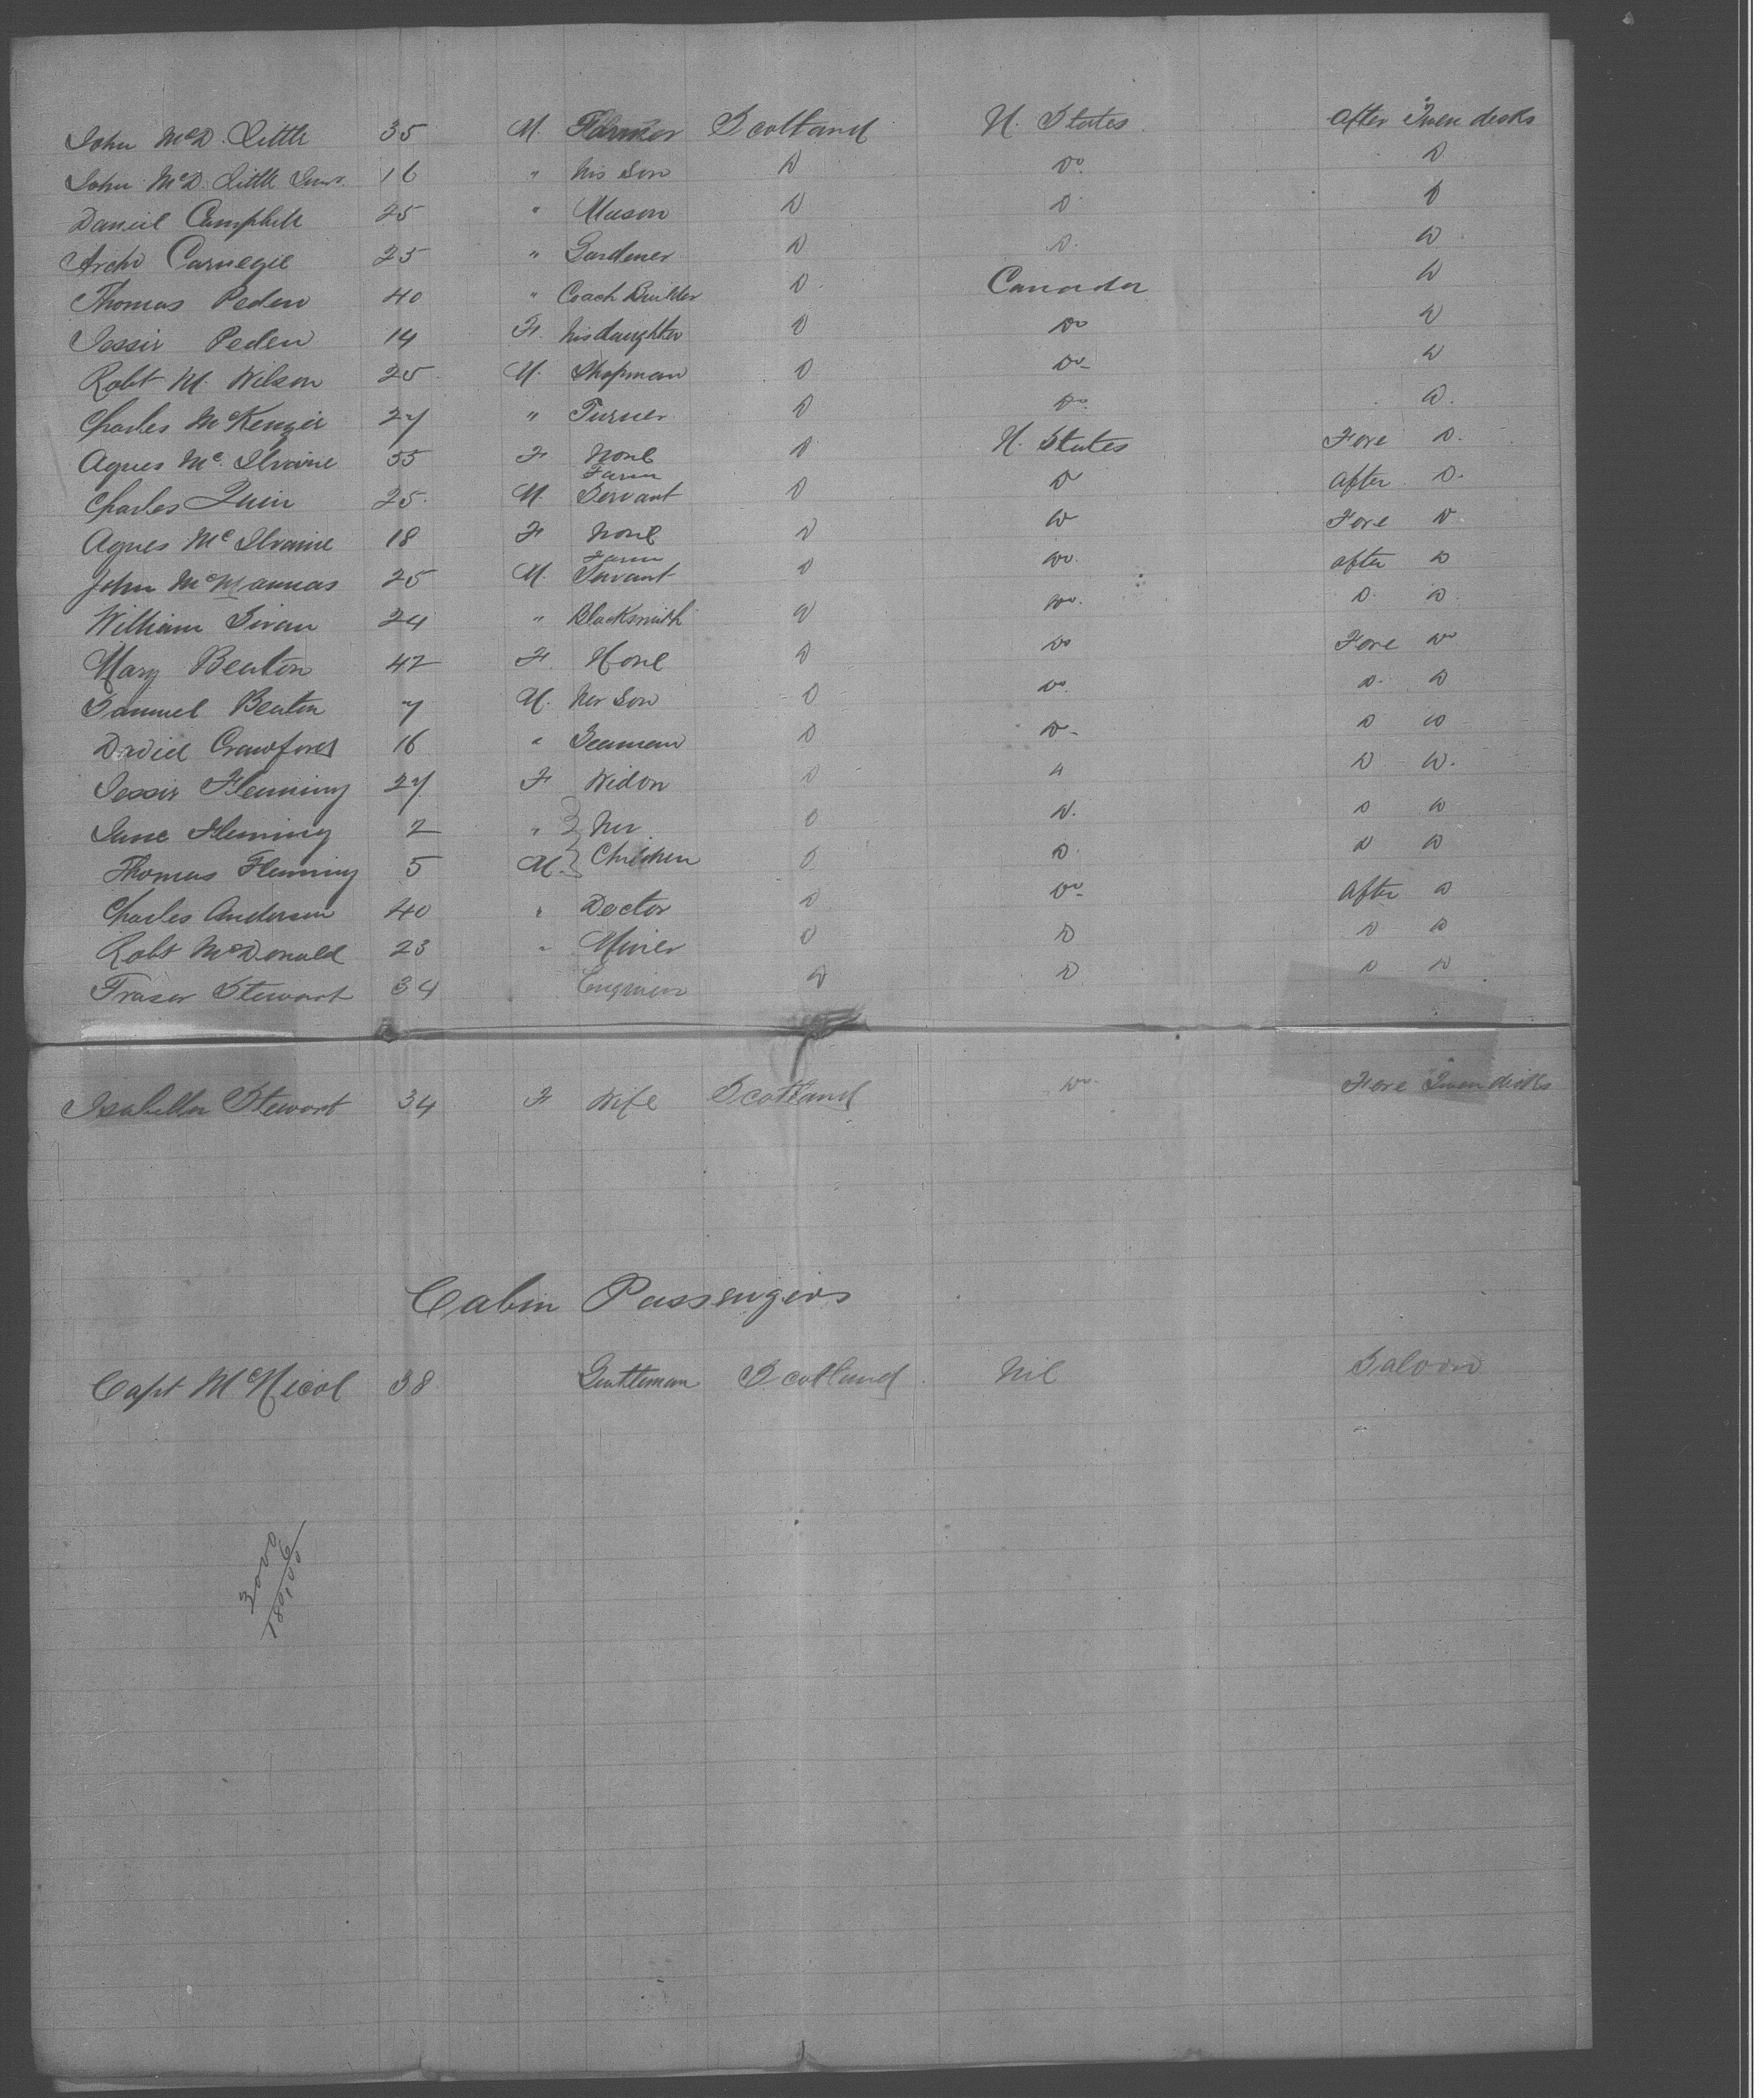 John McD. Little 35 M. Farmer Scotland U. States. After Tween decks
John McD. Little Junr. 16 " his Son D Do. D
Daniel Campbell 25 " Mason D D. D
Archd Carnegie 25 " Gardener D D. D.
Thomas Peden 40 " Coach Builder D. Canada D
Jessie Peden 14 F. his daughter D Do D
Robt M. Wilson 25 M. Shopman D Do D
Charles McKenzie 27 " Turner D Do. D.
Agnes Mc. Ilvaine 55 F None D U. States Fore D.
Farm
Charles Quin 25. M. Servant D D After D.
Agnes Mc Ilvaine 18 F None D D Fore D
Farm
John McMannas 25 M. Servant D Do. after D
William Sivan 24 " Blacksmith D Do. D. D.
Mary Beaton 42 F. None D Do Fore Do
Samuel Beaton 7 M. her Son D Do. D. D
David Crawford 16 " Seaman D D D D
Jessie Fleming 27 F Widow D " D D.
Jane Fleming 2 " her D D. D D
Thomas Fleming 5 M. Children D D. D D
Charles Anderson 40 " Doctor D Do After D
Robt McDonald 23 " Miner D D D D
Fraser Stewart 34 Engineer D D D D
Isabella Stewart 34 F Wife Scotland Do. Fore Tween decks
Cabin Passengers
Capt McNicol 38 Gentleman Scotland. Nil Saloon
3000